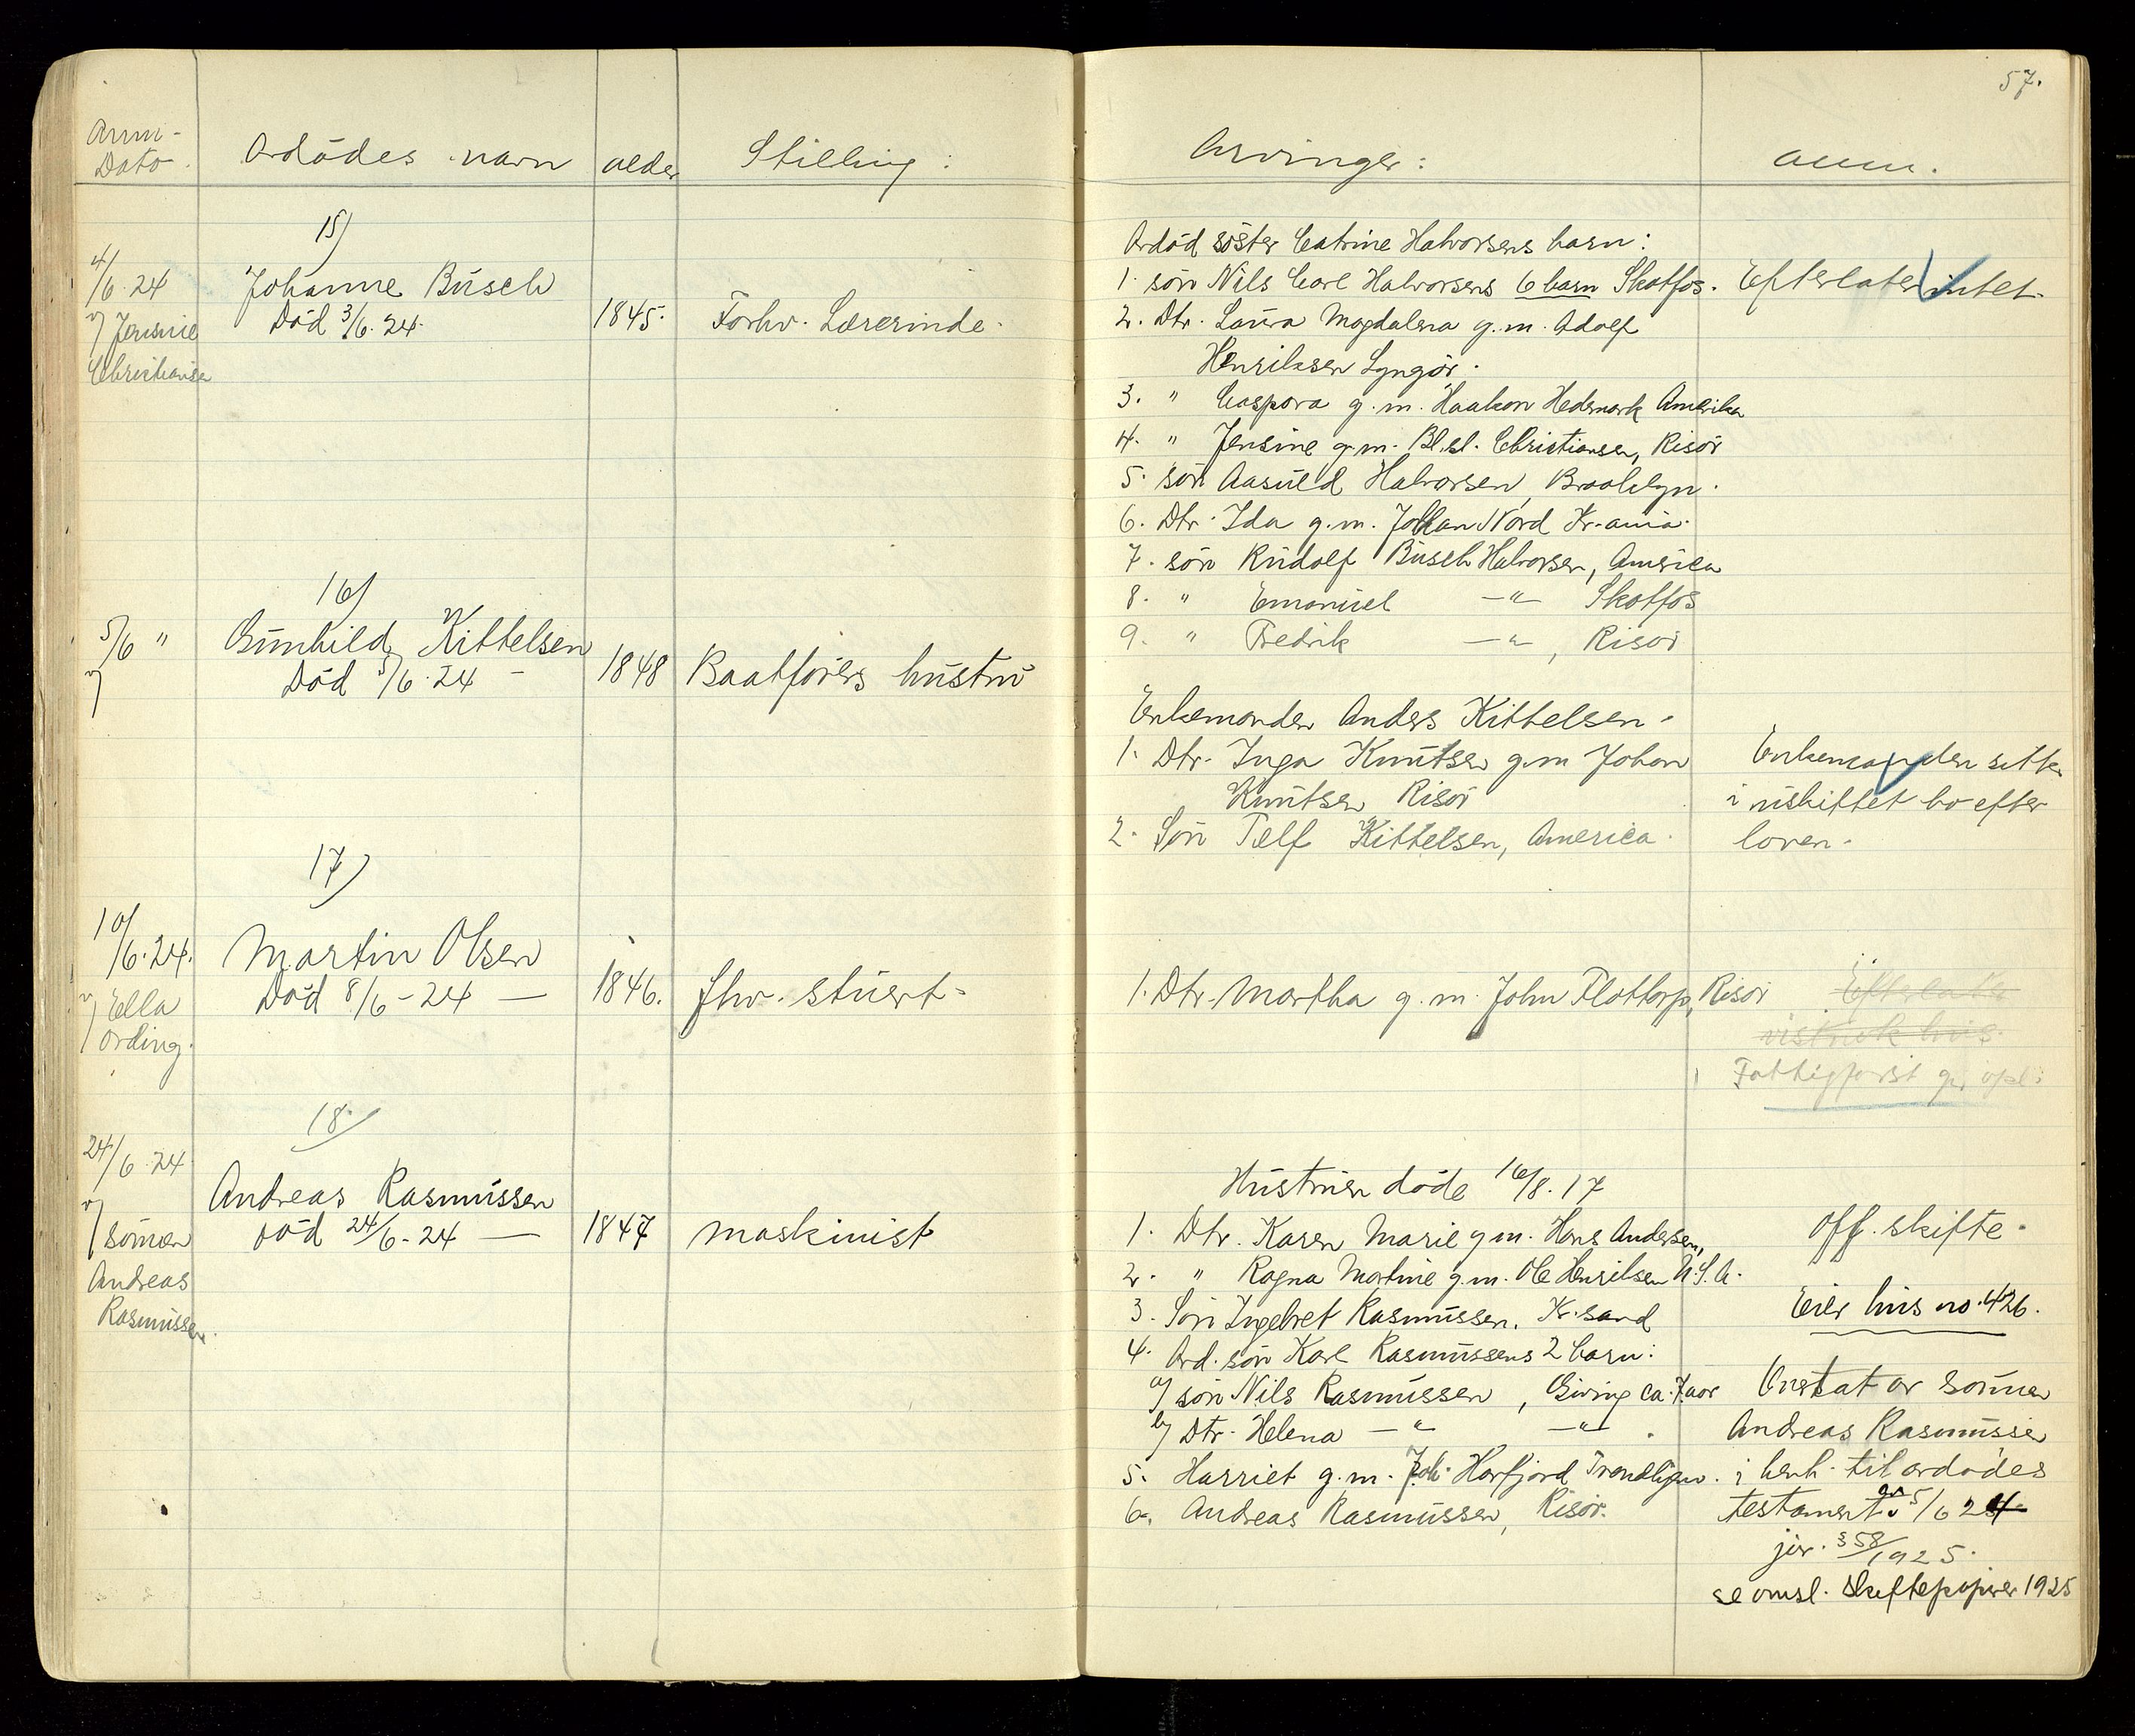 57.
Anm-
Dato.
Avdödes navn
alder
Stilling:
Arvinger:
anm.
15)
4/6 24
v/ Jensine
Christiansen
Johanne Busch
Död 3/6. 24.
1845.
Forhv. Lærerinde.
Avdöd söster Catrine Halvorsens barn:
1. sön Nils Carl Halvorsens 6 barn Skotfos.
2. Dtr. Laura Magdalena g.m. Adolf
Henriksen Lyngör.
3. " Caspara g.m. Haakon Hedemark Amerika
4. " Jensine g.m. Bl.sl. Christiansen, Risör
5. sön Aasuld Halvorsen, Brooklyn.
6. Dtr. Ida g.m. Johan Nord Kr.ania.
7. sön Rudolf Busch Halvorsen, America
8. " Emanuel —"— Skotfos
9. " Fredrik —"—, Risör
Efterlater intet.
16)
5/6 "
v/
Gunhild Kittelsen
Död 5/6. 24 -
1848
Baatförers hustru
Enkemanden Anders Kittelsen.
1. Dtr. Inga Knutsen g.m Johan
Knutsen Risör
2. Sön Tellf Kittelsen, America.
Enkemanden sitter
i uskiftet bo efter
loven.
17)
10/6. 24.
v/ Ella
Ording.
Martin Olsen
Död 8/6 - 24 —
1846.
fhv. stuert.
1. Dtr. Martha g.m. John Flottorp, Risör
Efterlater
Fattigforst gir opl:
18/
24/6. 24
v/ sönnen
Andreas
Rasmussen.
Andreas Rasmussen
död 24/6. 24 —
1847
maskinist
Hustruen döde 16/8. 17
1. Dtr. Karen Marie g m. Hans Andersen,
2. " Ragna Martine g.m. Ole Henriksen U.S.A.
3. Sön Ingebret Rasmussen. Kr.sand
4. Avd. sön Karl Rasmussens 2 barn:
a/ sön Nils Rasmussen, Giving ca. 7 aar
b/ Dtr. Helena —"— —"— .
5. Harriet g.m. Joh. Horfjord Trondhjem.
6. Andreas Rasmussen, Risör.
Off. skifte.
Eier hus no. 426.
Overtat av sönnen
Andreas Rasmussen
i henh. til avdödes
testament av 5/6 24
jvr. § 58/1925.
se omsl. Skiftepapirer 1925